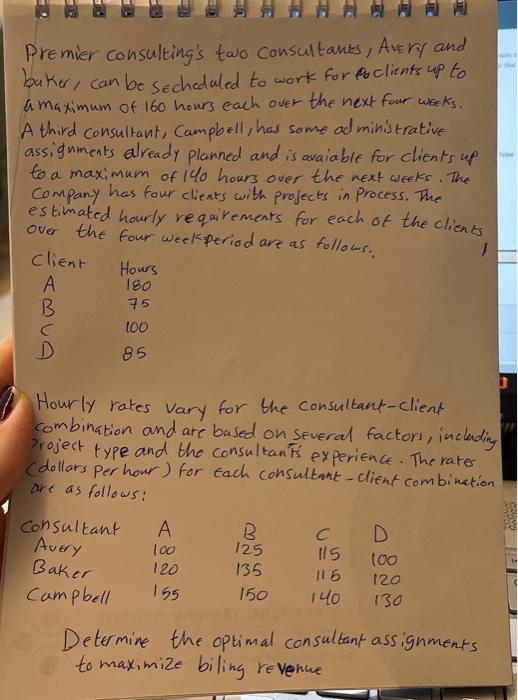 Premier consulting's two consultants, Avery and
baker, can be secheduled to work for clients up to
a maximum of 160 hours each over the next four weeks.
A third consultant, Campbell, has some administrative
assignments already planned and is avaiable for clients up
to a maximum of 140 hours over the next weeks. The
company has four clients with projects in process. The
estimated hourly requirements for each of the clients
over the four week period are as follows..
Client Hours
A 180
B 75
C 100
D 85
Hourly rates vary for the consultant-client
combination and are based on several factors, including
project type and the consultant's experience. The rates
(dollars per hour) for each consultant-client combination
are as follows:
Consultant A B C D
Avery 100 125 115 100
Baker 120 135 115 120
Campbell 155 150 140 130
Determine the optimal consultant assignments
to maximize biling revenue